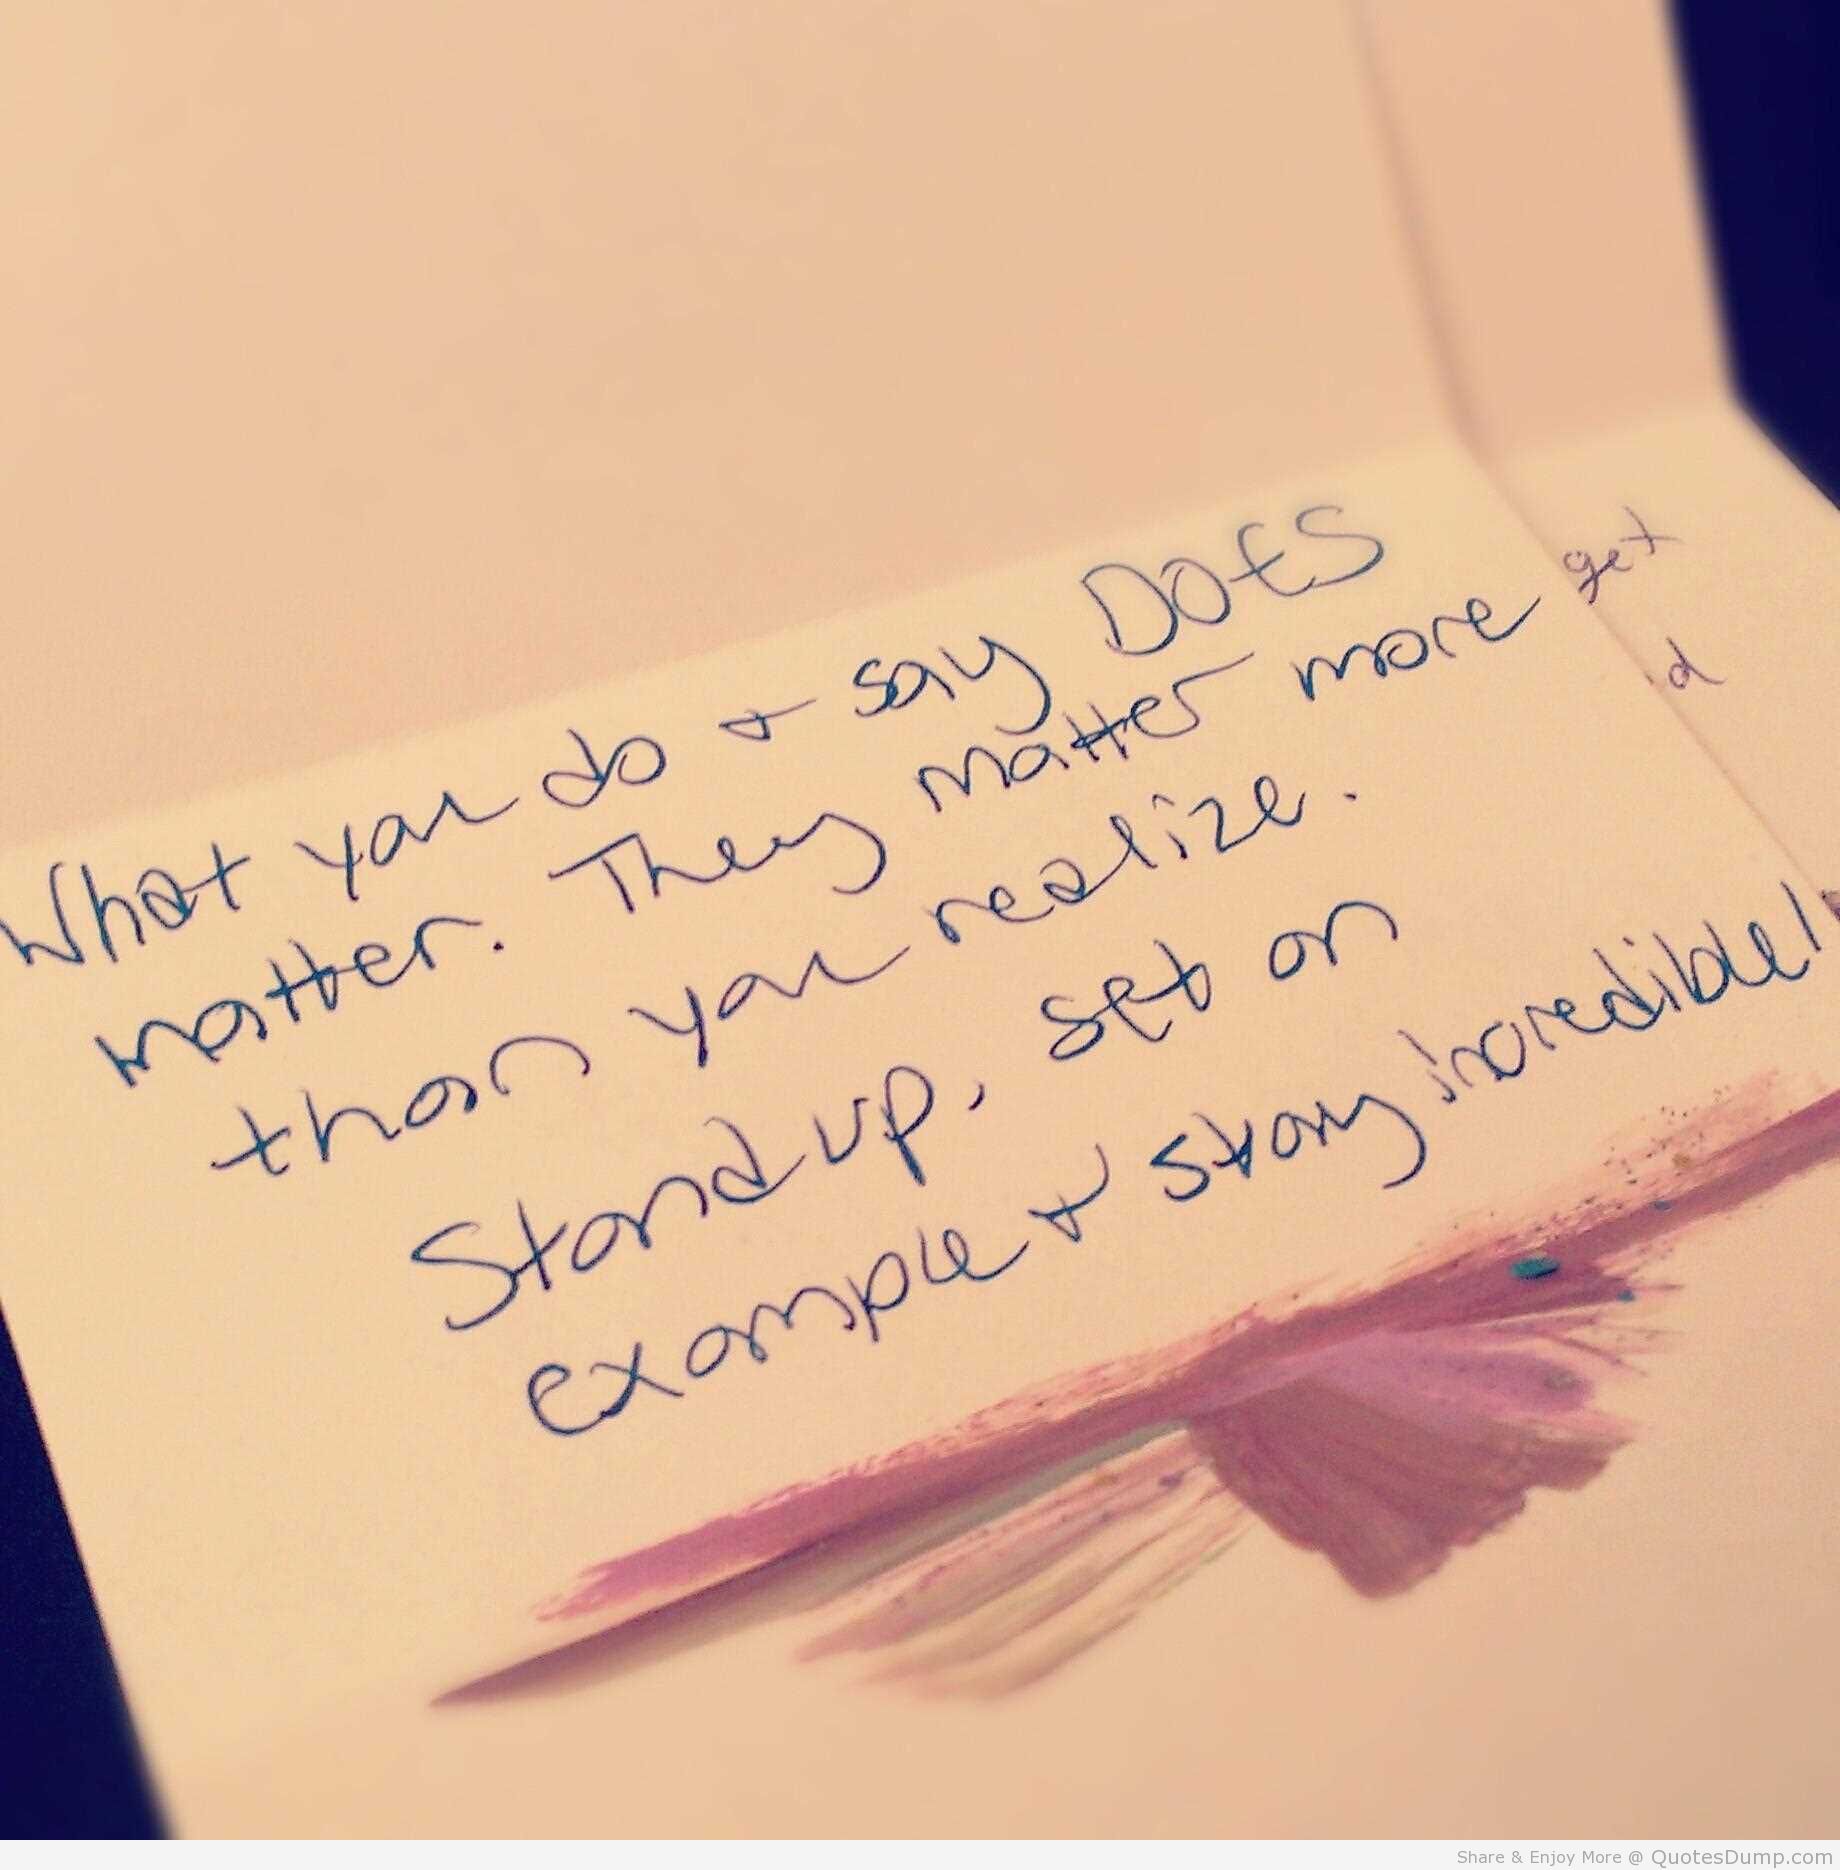 What you do & say DOES
matter. They matter more
than you realize.
Stand up, set an
example & stay incredible!
get
d
Share & Enjoy More @ QuotesDump.com